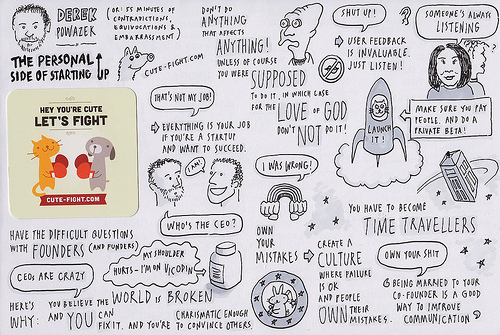 DEREK
POWAZEK
(OR: 55 MINUTES OF
CONTRADICTIONS,
EQUIVOCATIONS &
EMBARRASSMENT)
THE PERSONAL
SIDE OF STARTING UP
CUTE-FIGHT.COM
HEY YOU'RE CUTE
LET'S FIGHT
CUTE-FIGHT.COM
DON'T DO
ANYTHING
THAT AFFECTS
ANYTHING!
UNLESS OF COURSE
YOU WERE
SUPPOSED
TO DO IT, IN WHICH CASE
FOR THE LOVE OF GOD
DON'T NOT DO IT!
SHUT UP!
USER FEEDBACK
IS INVALUABLE.
JUST LISTEN!
?
SOMEONE'S ALWAYS
LISTENING
?
LAUNCH
IT!
MAKE SURE YOU PAY
PEOPLE. AND DO A
PRIVATE BETA!
THAT'S NOT MY JOB!
EVERYTHING IS YOUR JOB
IF YOU'RE A STARTUP
AND WANT TO SUCCEED.
I AM!
WHO'S THE CEO?
I WAS WRONG!
OWN
YOUR
MISTAKES
CREATE A
CULTURE
WHERE FAILURE
IS OK
AND PEOPLE
OWN THEIR
MISTAKES.
YOU HAVE TO BECOME
TIME TRAVELLERS
OWN YOUR SHIT
BEING MARRIED TO YOUR
CO-FOUNDER IS A GOOD
WAY TO IMPROVE
COMMUNICATION
HAVE THE DIFFICULT QUESTIONS
WITH FOUNDERS (AND FUNDERS)
CEOs ARE CRAZY
MY SHOULDER
HURTS - I'M ON VICODIN
HERE'S
WHY:
YOU BELIEVE THE WORLD IS BROKEN
AND YOU CAN
FIX IT. AND YOU'RE
CHARISMATIC ENOUGH
TO CONVINCE OTHERS.